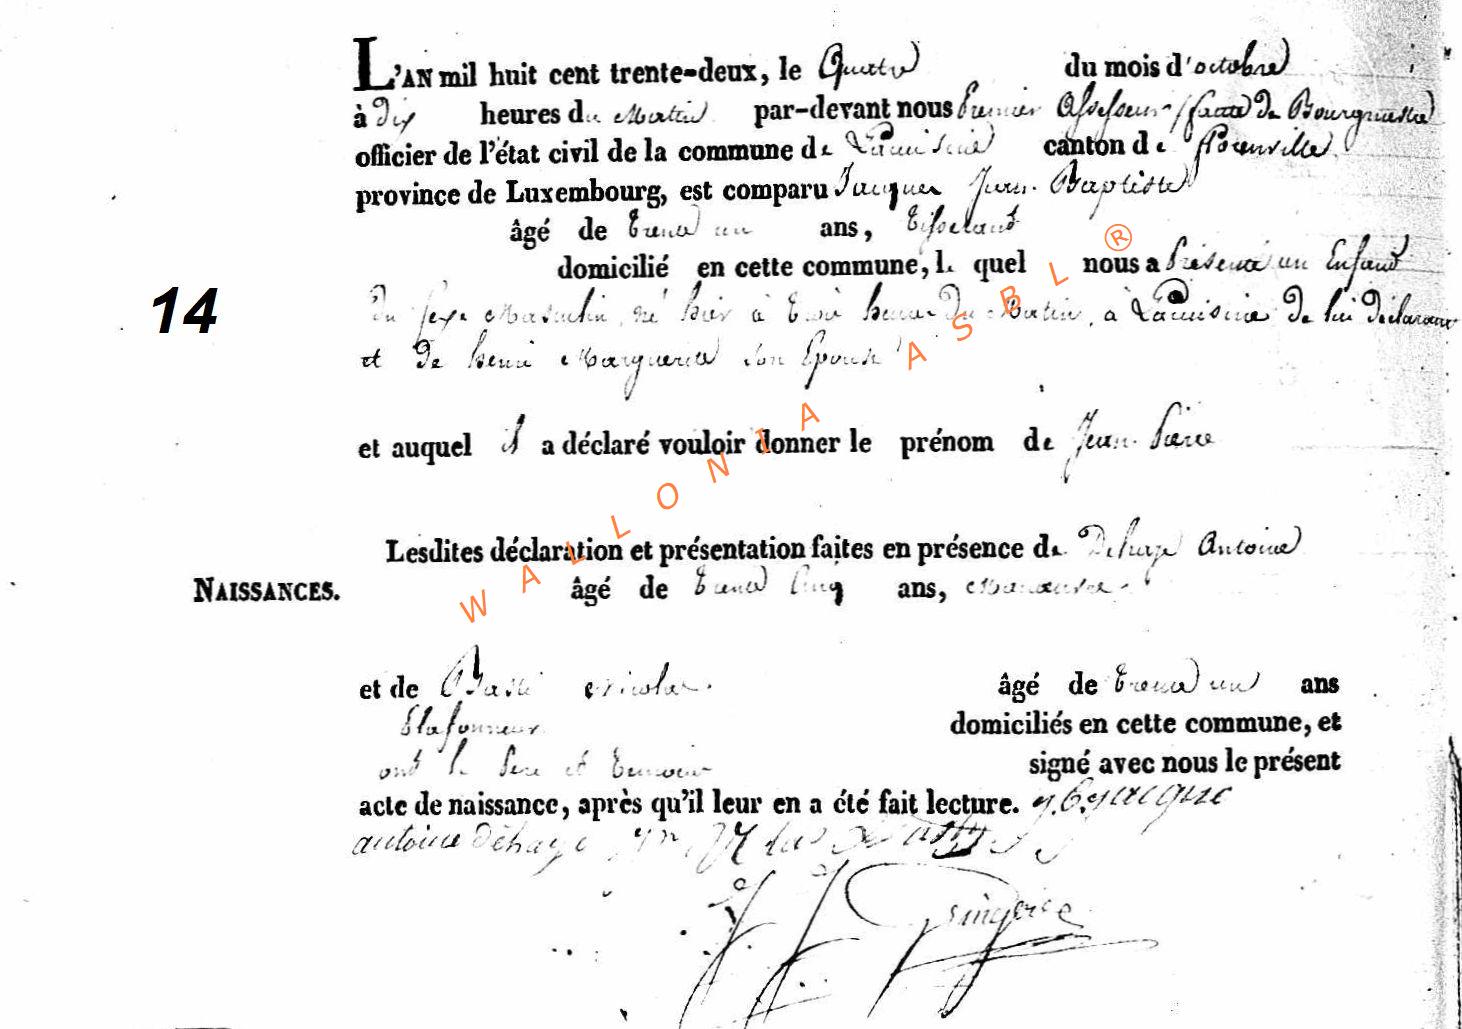 L'AN mil huit cent trente-deux, le Quatre du mois d'octobre
à dix heures du Matin par-devant nous Premier Assesseur faute de Bourgmestre
officier de l'état civil de la commune de Lacuisine canton de Florenville
province de Luxembourg, est comparu Jacques Jean-Baptiste
âgé de trente un ans, tisserant
domicilié en cette commune, le quel nous a Présenté un Enfant
14
du sexe Masculin, né hier à trois heures du Matin, à Lacuisine de lui déclarant
et de henri Marguerite son Epouse
et auquel il a déclaré vouloir donner le prénom de Jean-Pierre
Lesdites déclaration et présentation faites en présence de Dehaye Antoine
NAISSANCES.
âgé de trente Cinq ans, Manoeuvre
et de Nicolas âgé de trente un ans
Plafonneur domiciliés en cette commune, et
ont le Pere et temoins signé avec nous le présent
acte de naissance, après qu'il leur en a été fait lecture. Jacque
antoine dehaye
WALLONIA ASBL ®